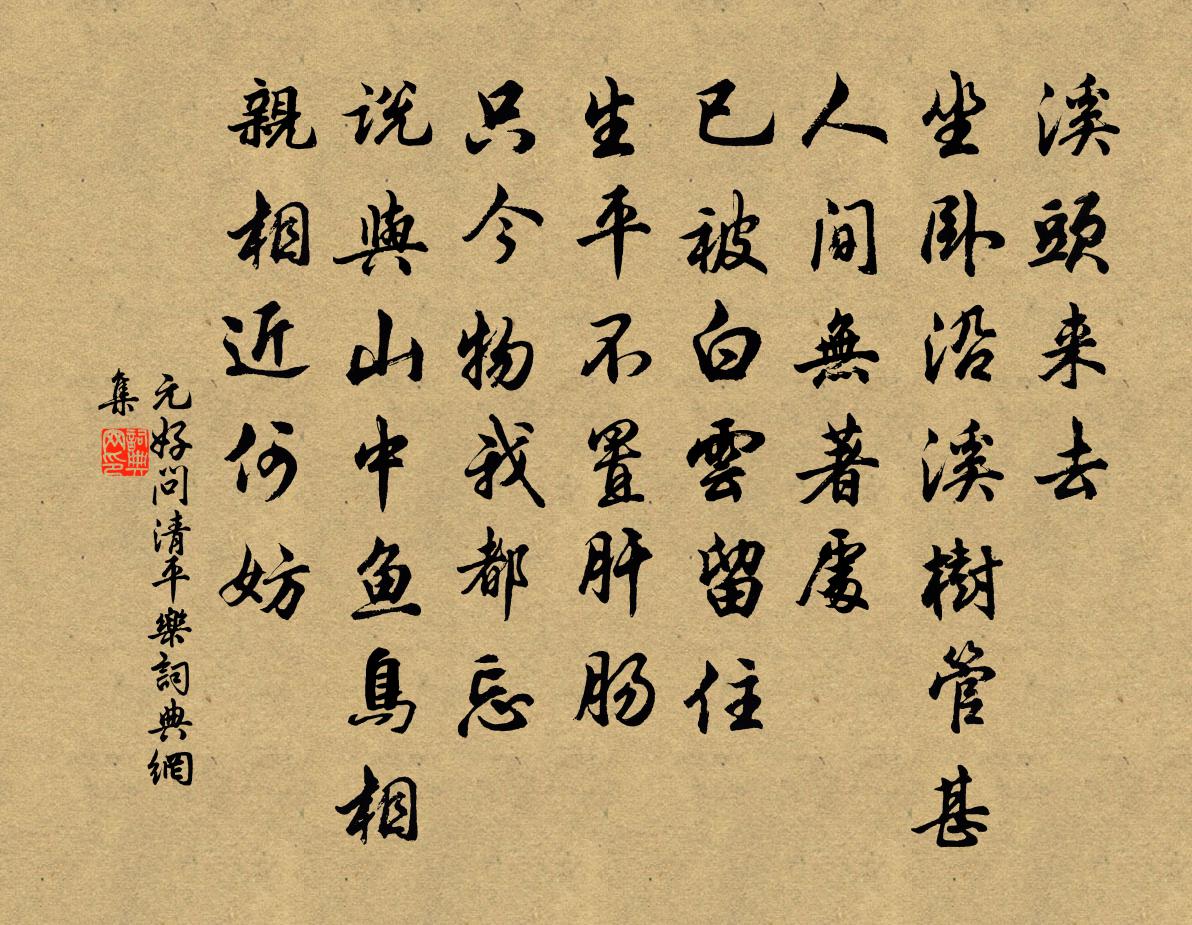 溪頭来去
坐卧沿溪樹管甚
人间無著處
已被白雲留住
生平不置肝肠
只今物我都忘
说與山中鱼鳥相
親相近何妨
元好问清平樂詞典網
集
詞典網印